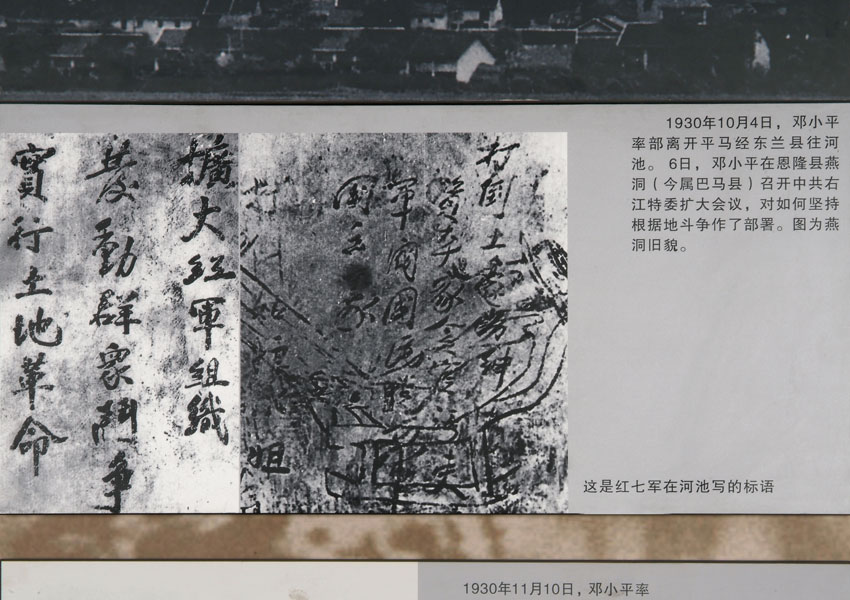 1930年10月4日，邓小平
率部离开平马经东兰县往河
池。 6日，邓小平在恩隆县燕
洞（今属巴马县）召开中共右
江特委扩大会议，对如何坚持
根据地斗争作了部署。图为燕
洞旧貌。
擴大红軍組織
發動群衆鬥爭
實行土地革命
打倒土豪劣紳
軍閥国民党
姐
这是红七军在河池写的标语
1930年11月10日，邓小平率